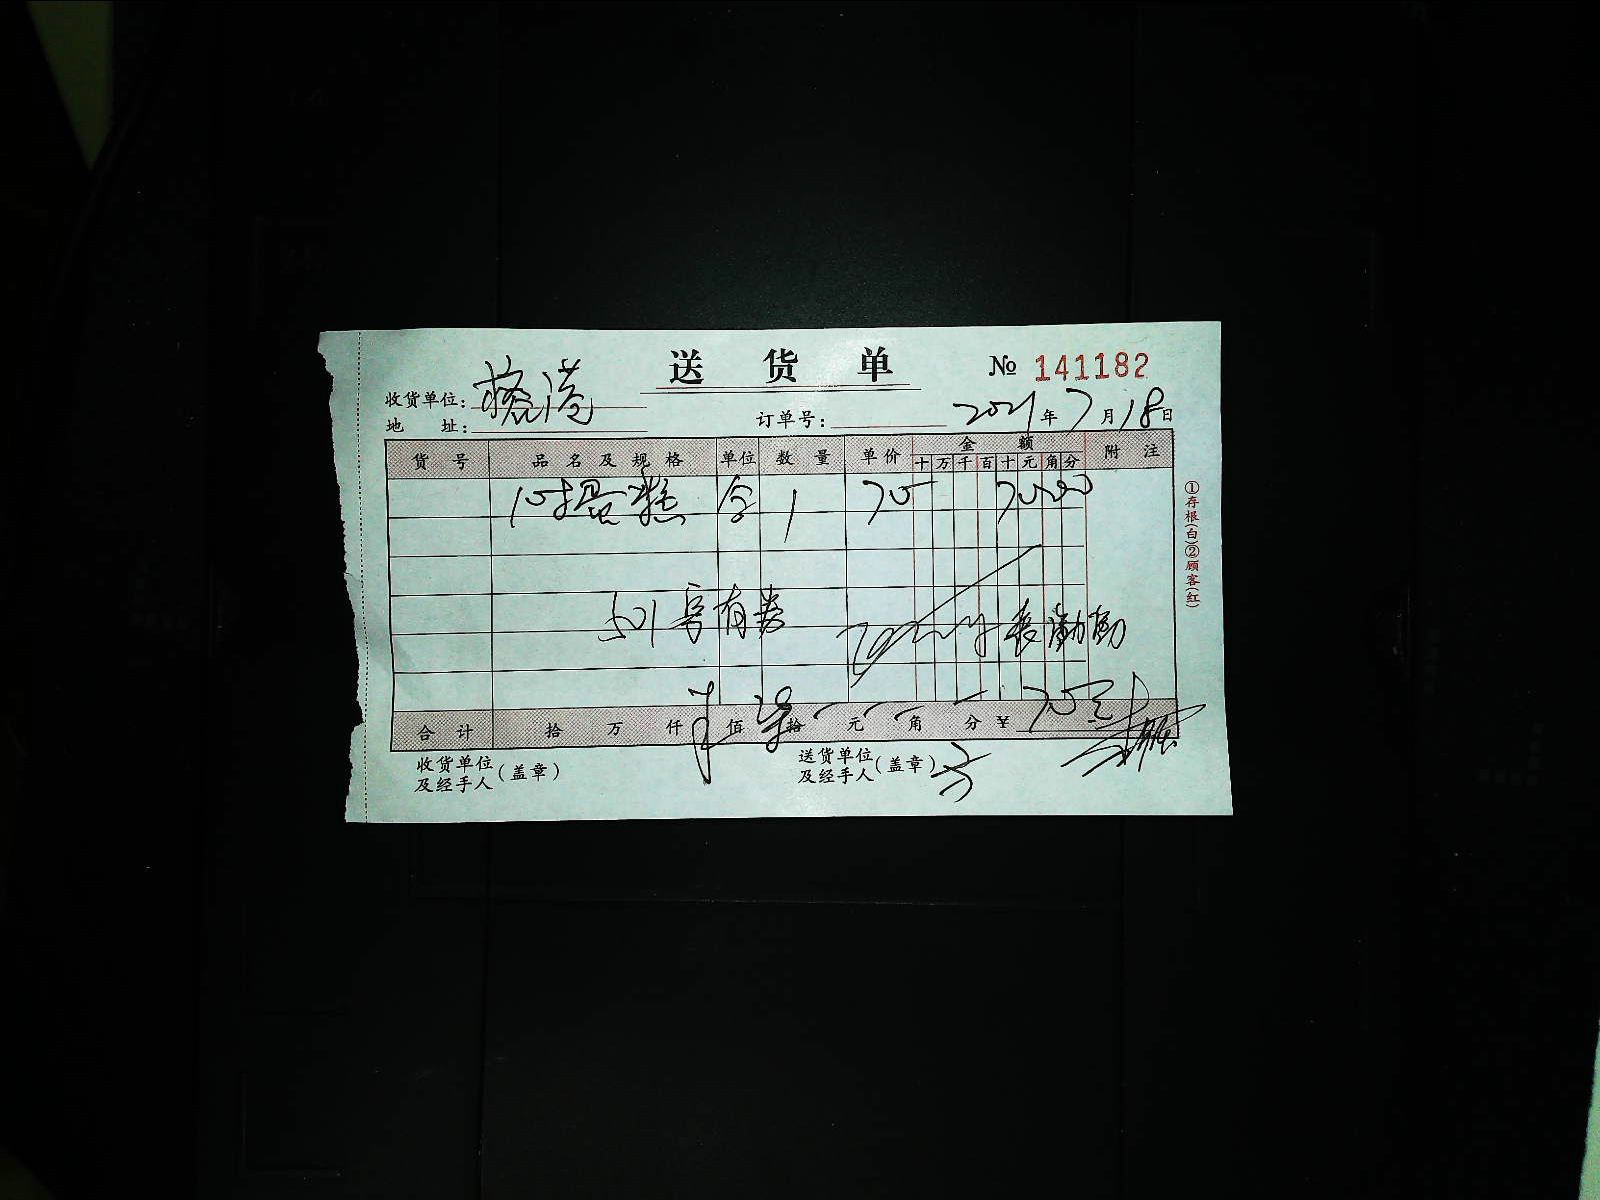 送货单 № 141182
收货单位: 榕港
地 址: 订单号: 2021年7月18日
货号 品名及规格 单位 数量 单价 金额 附注
十 万 千 百 十 元 角 分
10寸蛋糕 个 1 75 7500
501房有券
合计 拾 万 仟 佰 拾 元 角 分 ¥ 75元
收货单位及经手人(盖章) 送货单位及经手人(盖章)
①存根(白)②顾客(红)